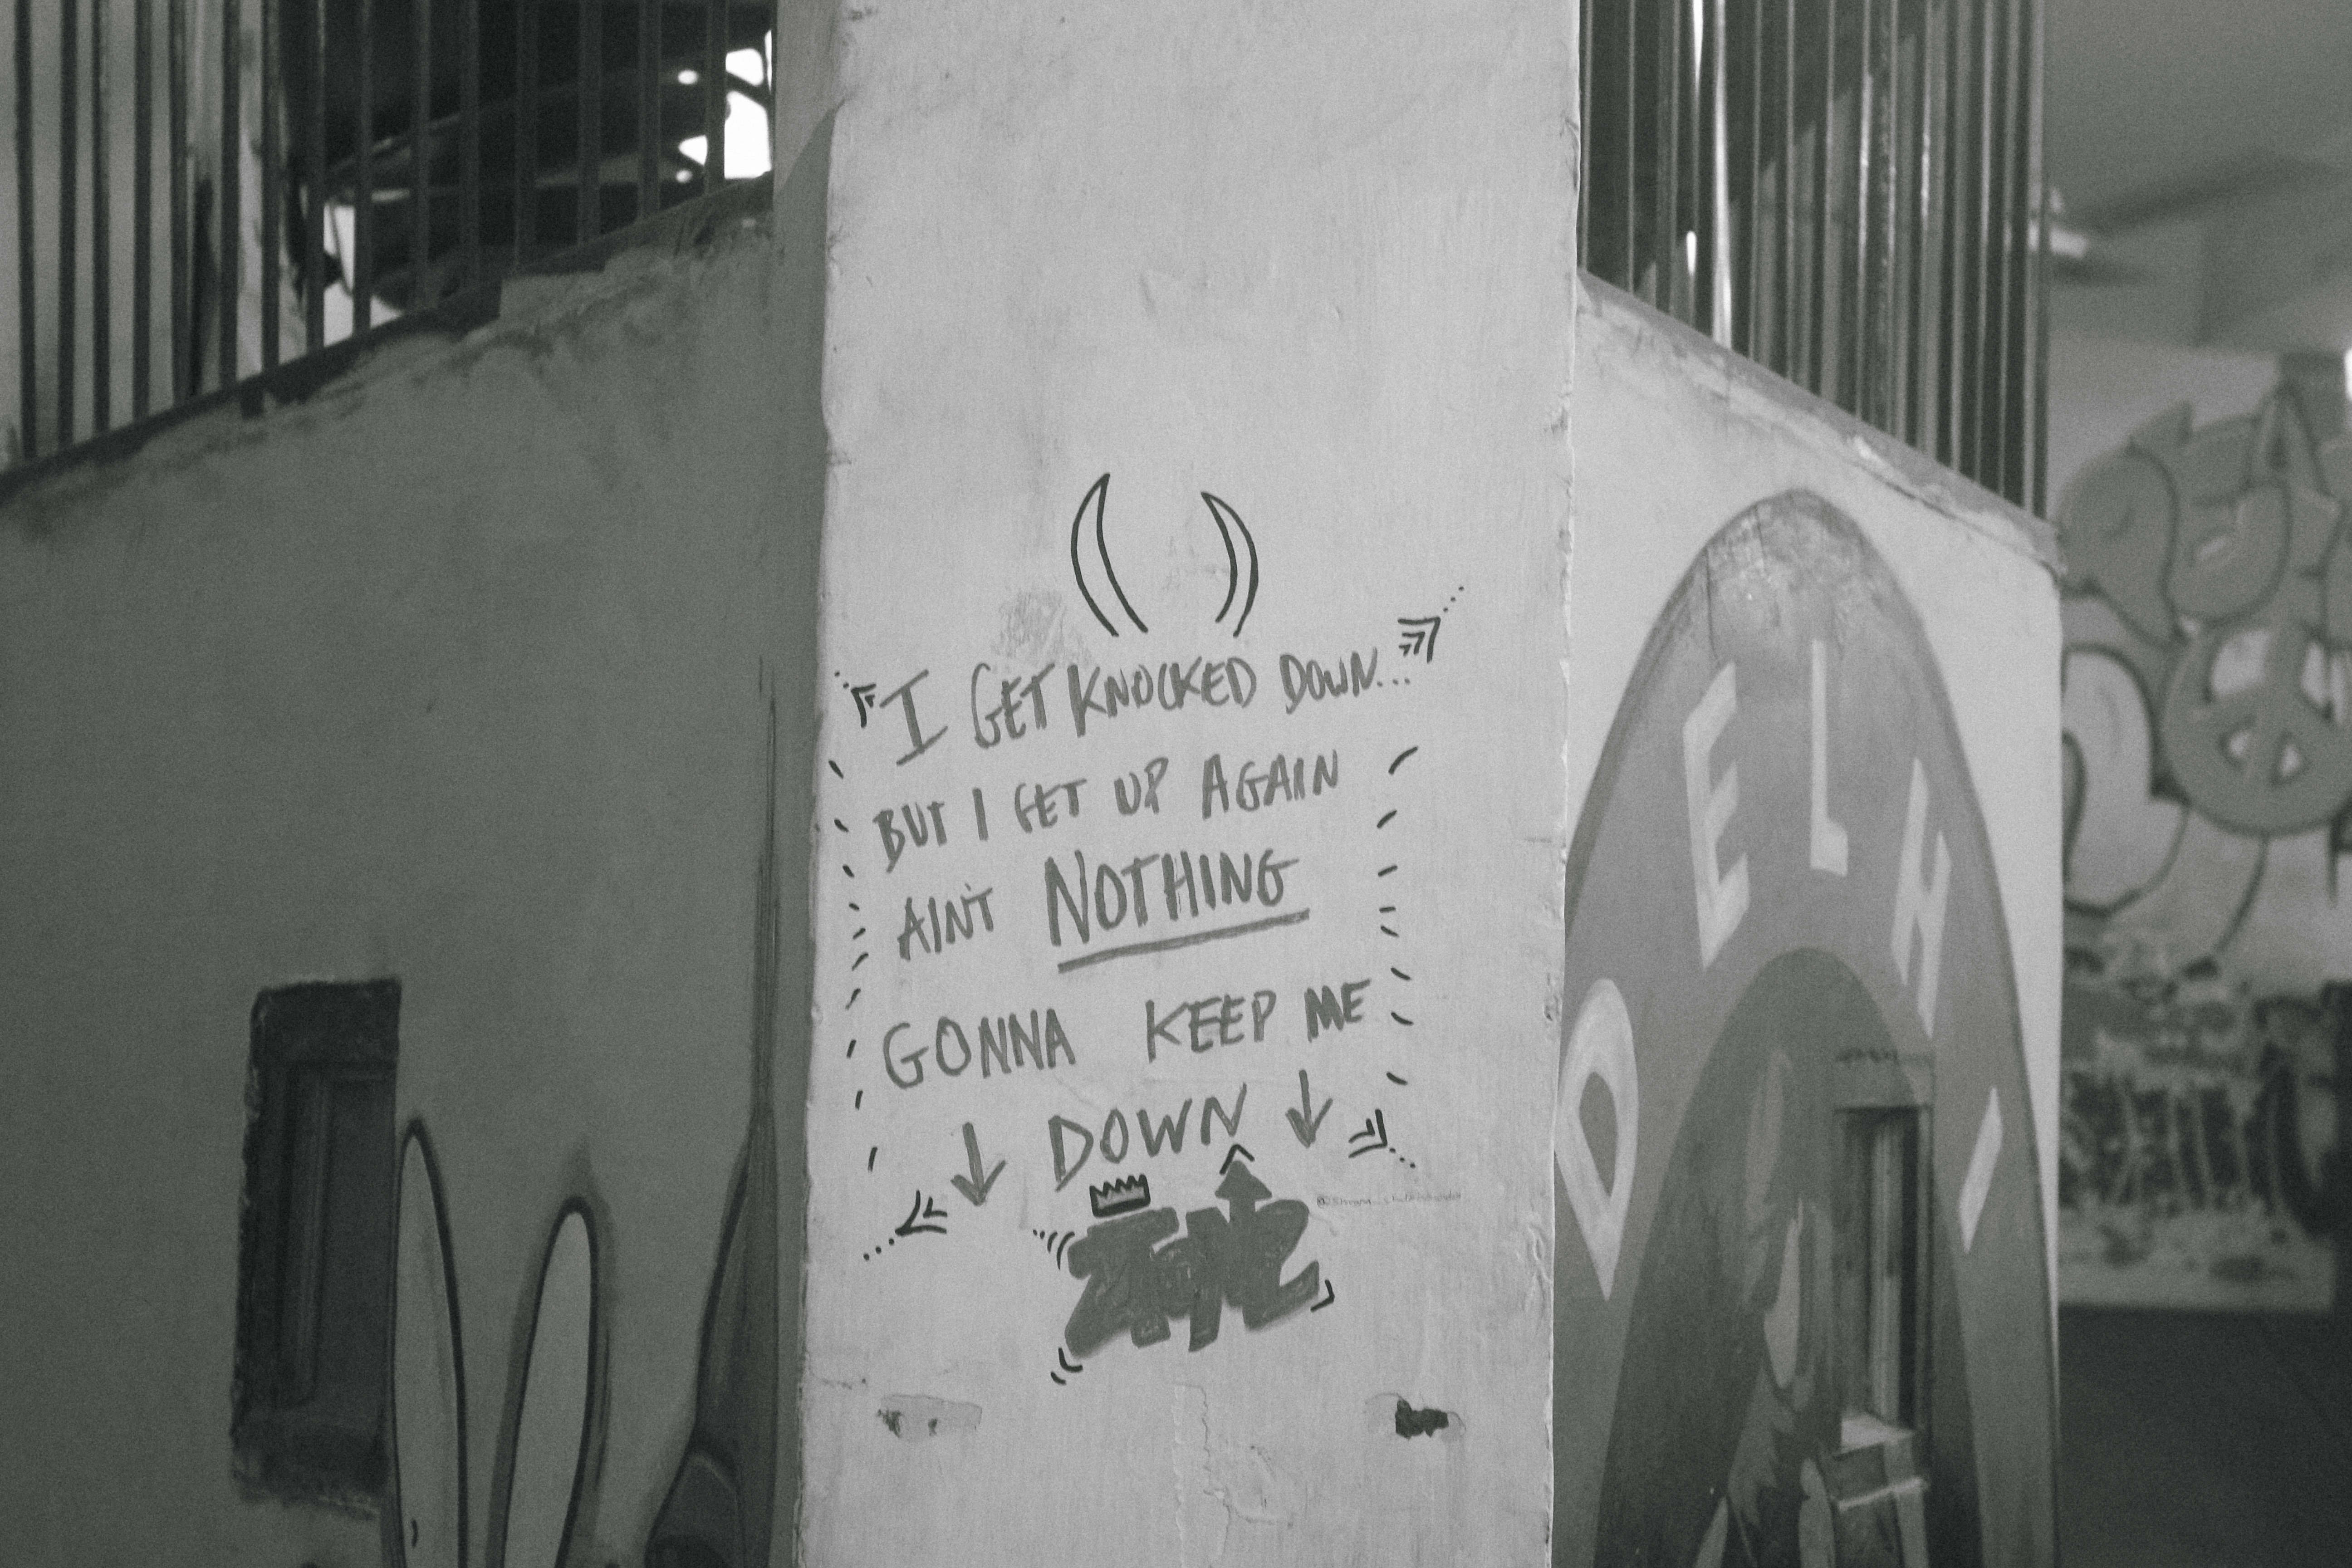 I GET KNOCKED DOWN...
BUT I GET UP AGAIN
AINT NOTHING
GONNA KEEP ME
DOWN
DELHI